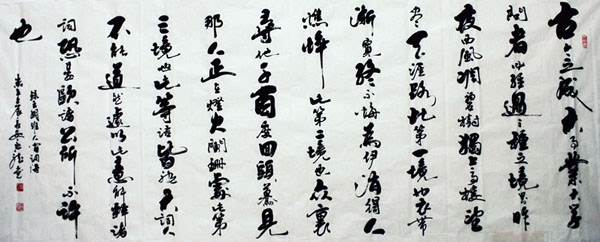 古今之成大事業大學
問者必經過三種之境界昨
夜西風凋碧樹獨上高樓望
盡天涯路此第一境也衣帶
漸寬終不悔為伊消得人
憔悴此第二境也眾裏
尋他千百度回頭驀見
那人正在燈火闌珊處第
三境也此等語皆非大詞人
不能道然遽以此意解釋諸
詞恐晏歐諸公所不許
也
錄王國維人間詞話